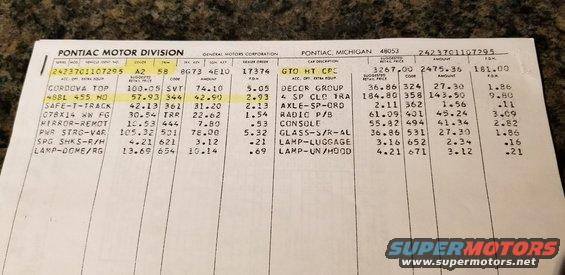 PONTIAC MOTOR DIVISION GENERAL MOTORS CORPORATION PONTIAC, MICHIGAN 48053 2423701107295
SERIES MOD. VEHICLE IDENT. NO. COLOR TRIM TRK. KEY IGN. KEY DEALER ORDER CAR DESCRIPTION SUGGESTED RETAIL PRICE AMOUNT F.D.H.
2423701107295 A2 58 8G73 4E10 17374 GTO HT CPE 3267.00 2475.36 181.00
ACC. OPT. EXTRA EQUIP. SUGGESTED RETAIL PRICE CODE AMOUNT F.D.H. ACC. OPT. EXTRA EQUIP. SUGGESTED RETAIL PRICE CODE AMOUNT F.D.H.
CORDOVA TOP 100.05 SVT 74.10 5.05 DECOR GROUP 36.86 324 27.30 1.86
488L 455 HO 57.93 344 42.90 2.93 4 SP CLO TRA 184.80 358 143.52 9.80
SAFE-T-TRACK 42.13 361 31.20 2.13 AXLE-SP-ORD 2.11 362 1.56 .11
G78X14 WW FG 30.54 TRR 22.62 1.54 RADIO P/B 61.09 401 45.24 3.09
MIRROR-REMOT 10.53 444 7.80 .53 CONSOLE 55.82 494 41.34 2.82
PWR STRG-VAR 105.32 501 78.00 5.32 GLASS-S/R-AL 36.86 531 27.30 1.86
SPG SHKS-R/H 4.21 621 3.12 .21 LAMP-LUGGAGE 3.16 652 2.34 .16
LAMP-DOME/RG 13.69 654 10.14 .69 LAMP-UN/HOOD 4.21 671 3.12 .21
SUPERMOTORS
www.supermotors.net